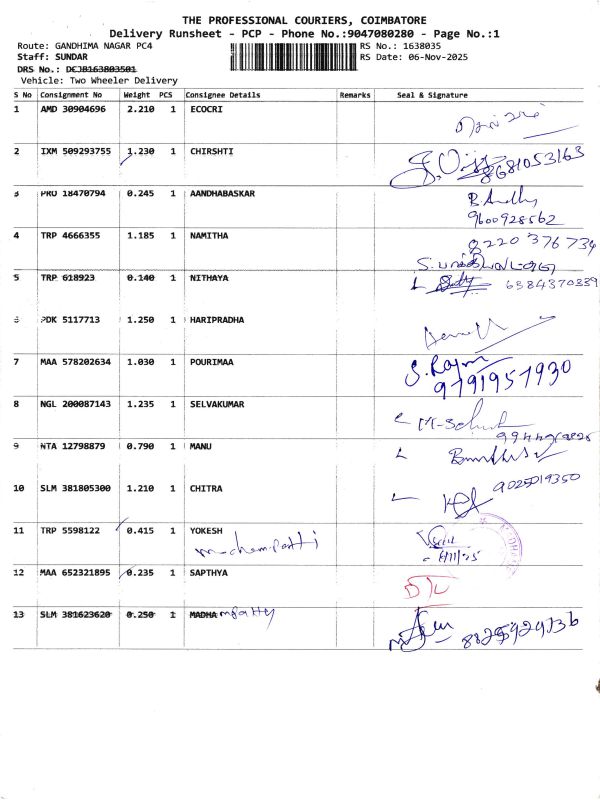 THE PROFESSIONAL COURIERS, COIMBATORE
Delivery Runsheet - PCP - Phone No.:9047080280 - Page No.:1
Route: GANDHIMA NAGAR PC4 RS No.: 1638035
Staff: SUNDAR RS Date: 06-Nov-2025
DRS No.:
Vehicle: Two Wheeler Delivery
S No Consignment No Weight PCS Consignee Details Remarks Seal & Signature
1 AMD 30904696 2.210 1 ECOCRI
2 IXM 509293755 1.230 1 CHIRSHTI 8681053163
3 PRO 18470794 0.245 1 AANDHABASKAR
9600928562
4 TRP 4666355 1.185 1 NAMITHA 8220376734
5 TRP 618923 0.140 1 NITHAYA 6384370339
6 PDK 5117713 1.250 1 HARIPRADHA
7 MAA 578202634 1.030 1 POURIMAA S. Rajm
9791951930
8 NGL 200087143 1.235 1 SELVAKUMAR
9 NTA 12798879 0.790 1 MANU
10 SLM 381805300 1.210 1 CHITRA 9025019350
11 TRP 5598122 0.415 1 YOKESH
12 MAA 652321895 0.235 1 SAPTHYA D/L
13 SLM 381623620 0.250 1 MADHA 8825929736